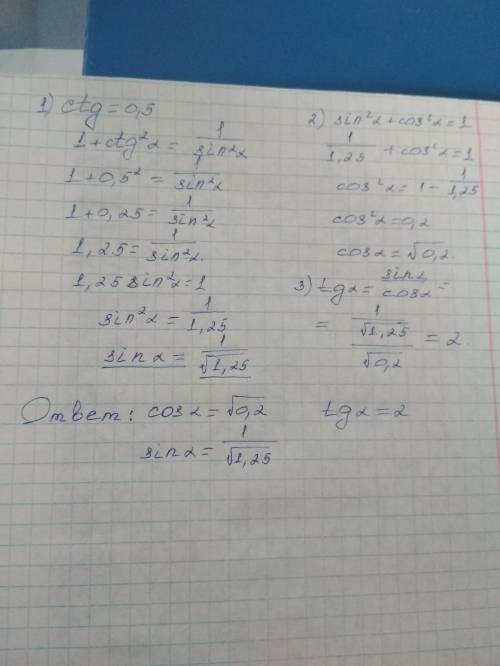 1) ctg = 0,5
1 + ctg²α = 1/sin²α
1 + 0,5² = 1/sin²α
1 + 0,25 = 1/sin²α
1,25 = 1/sin²α
1,25 sin²α = 1
sin²α = 1/1,25
sin α = 1/√1,25
2) sin²α + cos²α = 1
1/1,25 + cos²α = 1
cos²α = 1 - 1/1,25
cos²α = 0,2
cos α = √0,2
3) tg α = sin α/cos α =
= (1/√1,25)/√0,2 = 2
Ответ: cos α = √0,2 tg α = 2
sin α = 1/√1,25